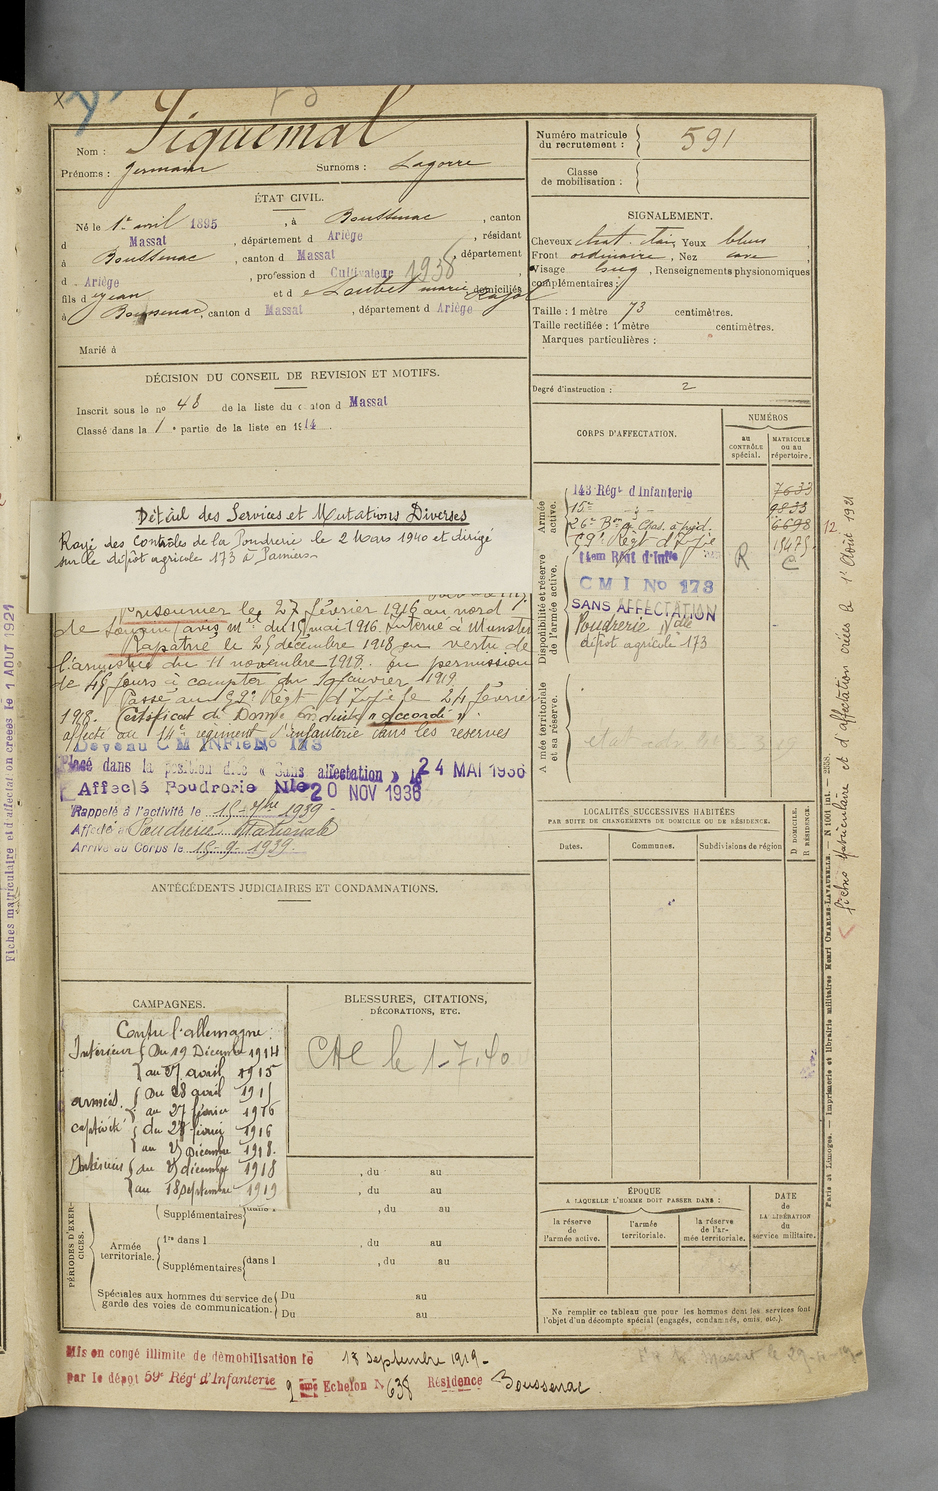 Nom : Piquemal
Prénoms : Germain Surnoms : Lagorre
ÉTAT CIVIL.
Né le 1er avril 1895, à Boussenac, canton
d Massat, département d Ariège, résidant
à Boussenac, canton d Massat, département
d Ariège, profession d Cultivateur 1938
fils d Jean et d Loubet marie domiciliés
à Boussenac, canton d Massat, département d Ariège
Marié à
DÉCISION DU CONSEIL DE REVISION ET MOTIFS.
Inscrit sous le no 48 de la liste du canton d Massat
Classé dans la 1e partie de la liste en 1914.
Détail des Services et Mutations Diverses
Rayé des contrôles de la Poudrerie le 2 Mars 1940 et dirigé
sur le dépôt agricole 173 à Pamiers
Prisonnier le 27 février 1916 au nord
de (avis du 15 mai 1916. Interné à Munster
Rapatrié le 25 décembre 1918 en vertu de
l'armistice du 11 novembre 1918. En permission
de 45 jours à compter du janvier 1919
Passé au 59e Régt d'Infie le 24 février
1918. Certificat de Bonne Conduite "accordé".
affecté au 14e régiment d'infanterie dans les réserves
Devenu C M INFIE No 173
Placé dans la position dite « Sans affectation » le 24 MAI 1936
Affecté Poudrerie Nle 20 NOV 1936
Rappelé à l'activité le 15-9bre 1939-
Affecté à Poudrerie Nationale
Arrivé au Corps le 15-9-1939.
ANTÉCÉDENTS JUDICIAIRES ET CONDAMNATIONS.
CAMPAGNES.
Contre l'allemagne
Intérieur { Du 19 Décembre 1914
au 27 avril 1915
armées. { Du 28 avril 191
au 27 février 1916
captivité { du 28 février 1916
au 25 Décembre 1918.
Intérieur { du 25 décembre 1918
au 18 septembre 1919
BLESSURES, CITATIONS,
DÉCORATIONS, ETC.
le 1-7.40
PÉRIODES D'EXERCICES.
, du au
, du au
Supplémentaires { dans l , du au
Armée territoriale. { 1re dans l , du au
Supplémentaires { dans l , du au
Spéciales aux hommes du service de { Du au
garde des voies de communication. { Du au
Mis en congé illimité de démobilisation le 18 septembre 1919-
par le dépôt 59e Régt d'Infanterie
2 ème Echelon No 638 Résidence Boussenac
Numéro matricule
du recrutement : } 591
Classe
de mobilisation : }
SIGNALEMENT.
Cheveux chat. clair Yeux bleus
Front ordinaire, Nez cave
Visage long, Renseignements physionomiques
complémentaires :
Taille : 1 mètre 73 centimètres.
Taille rectifiée : 1 mètre centimètres.
Marques particulières :
Degré d'instruction : 2
CORPS D'AFFECTATION.
NUMÉROS
au CONTRÔLE spécial.
MATRICULE ou au répertoire.
Armée active.
143 Régt d'Infanterie 7633
15e 9833
26e Bon de Chas. à pied. 6698
59e Régt d'Infie 15475
Disponibilité et réserve de l'armée active.
14em Régt d'Infie R C
C M I No 173
SANS AFFECTATION
Poudrerie Nale
dépôt agricole 173
Armée territoriale et sa réserve.
LOCALITÉS SUCCESSIVES HABITÉES
PAR SUITE DE CHANGEMENTS DE DOMICILE OU DE RÉSIDENCE.
Dates. Communes. Subdivisions de région
D. DOMICILE.
R. RÉSIDENCE.
ÉPOQUE
A LAQUELLE L'HOMME DOIT PASSER DANS :
la réserve de l'armée active.
l'armée territoriale.
la réserve de l'armée territoriale.
DATE
de
LA LIBÉRATION
du
service militaire.
Ne remplir ce tableau que pour les hommes dont les services font
l'objet d'un décompte spécial (engagés, condamnés, omis, etc.).
Massat le 29-
Paris et Limoges. — Imprimerie et librairie militaires Henri CHARLES-LAVAUZELLE. — N° 1001 int. — 2558.
12 fiches Matriculaire et d'affectation créées le 1er Août 1921
Fiches matriculaire et d'affectation créées le 1 AOUT 1921